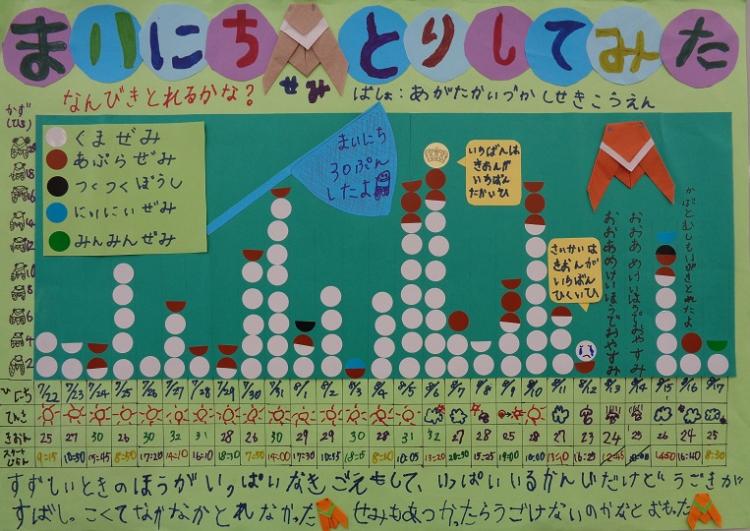 まいにちとりしてみた
せみ
なんびきとれるかな？
ばしょ：あがたかいづかしせきこうえん
かず
(ひき)
くまぜみ
あぶらぜみ
つくつくぼうし
にいにいぜみ
みんみんぜみ
まいにち
30ぷん
したよ
いちばんは
きおんが
いちばん
たかいひ
さいかいは
きおんが
いちばん
ひくいひ
おおあめけいほうでおやすみ
おおあめけいほうでおやすみ
かぶとむしもいっぴきとれたよ
18
16
14
12
10
8
6
4
2
ひにち 7/22 7/23 7/24 7/25 7/26 7/27 7/28 7/29 7/30 7/31 8/1 8/2 8/3 8/4 8/5 8/6 8/7 8/8 8/9 8/10 8/11 8/12 8/13 8/14 8/15 8/16 8/17
てんき
きおん 25 27 30 26 30 32 31 28 26 30 29 29 30 28 31 32 27 28 25 28 27 26 24 25 26 24 25
スタート
じかん 9:15 10:50 15:45 8:50 17:20 14:10 16:10 18:10 7:50 14:00 17:30 10:55 8:10 13:20 20:50 15:25 19:00 10:00 13:40 16:50 16:40 8:30
すずしいときのほうがいっぱいなきごえもして、いっぱいいるかんじだけどうごきが
すばしっこくてなかなかとれなかった せみもあつかったらうごけないのかなとおもった